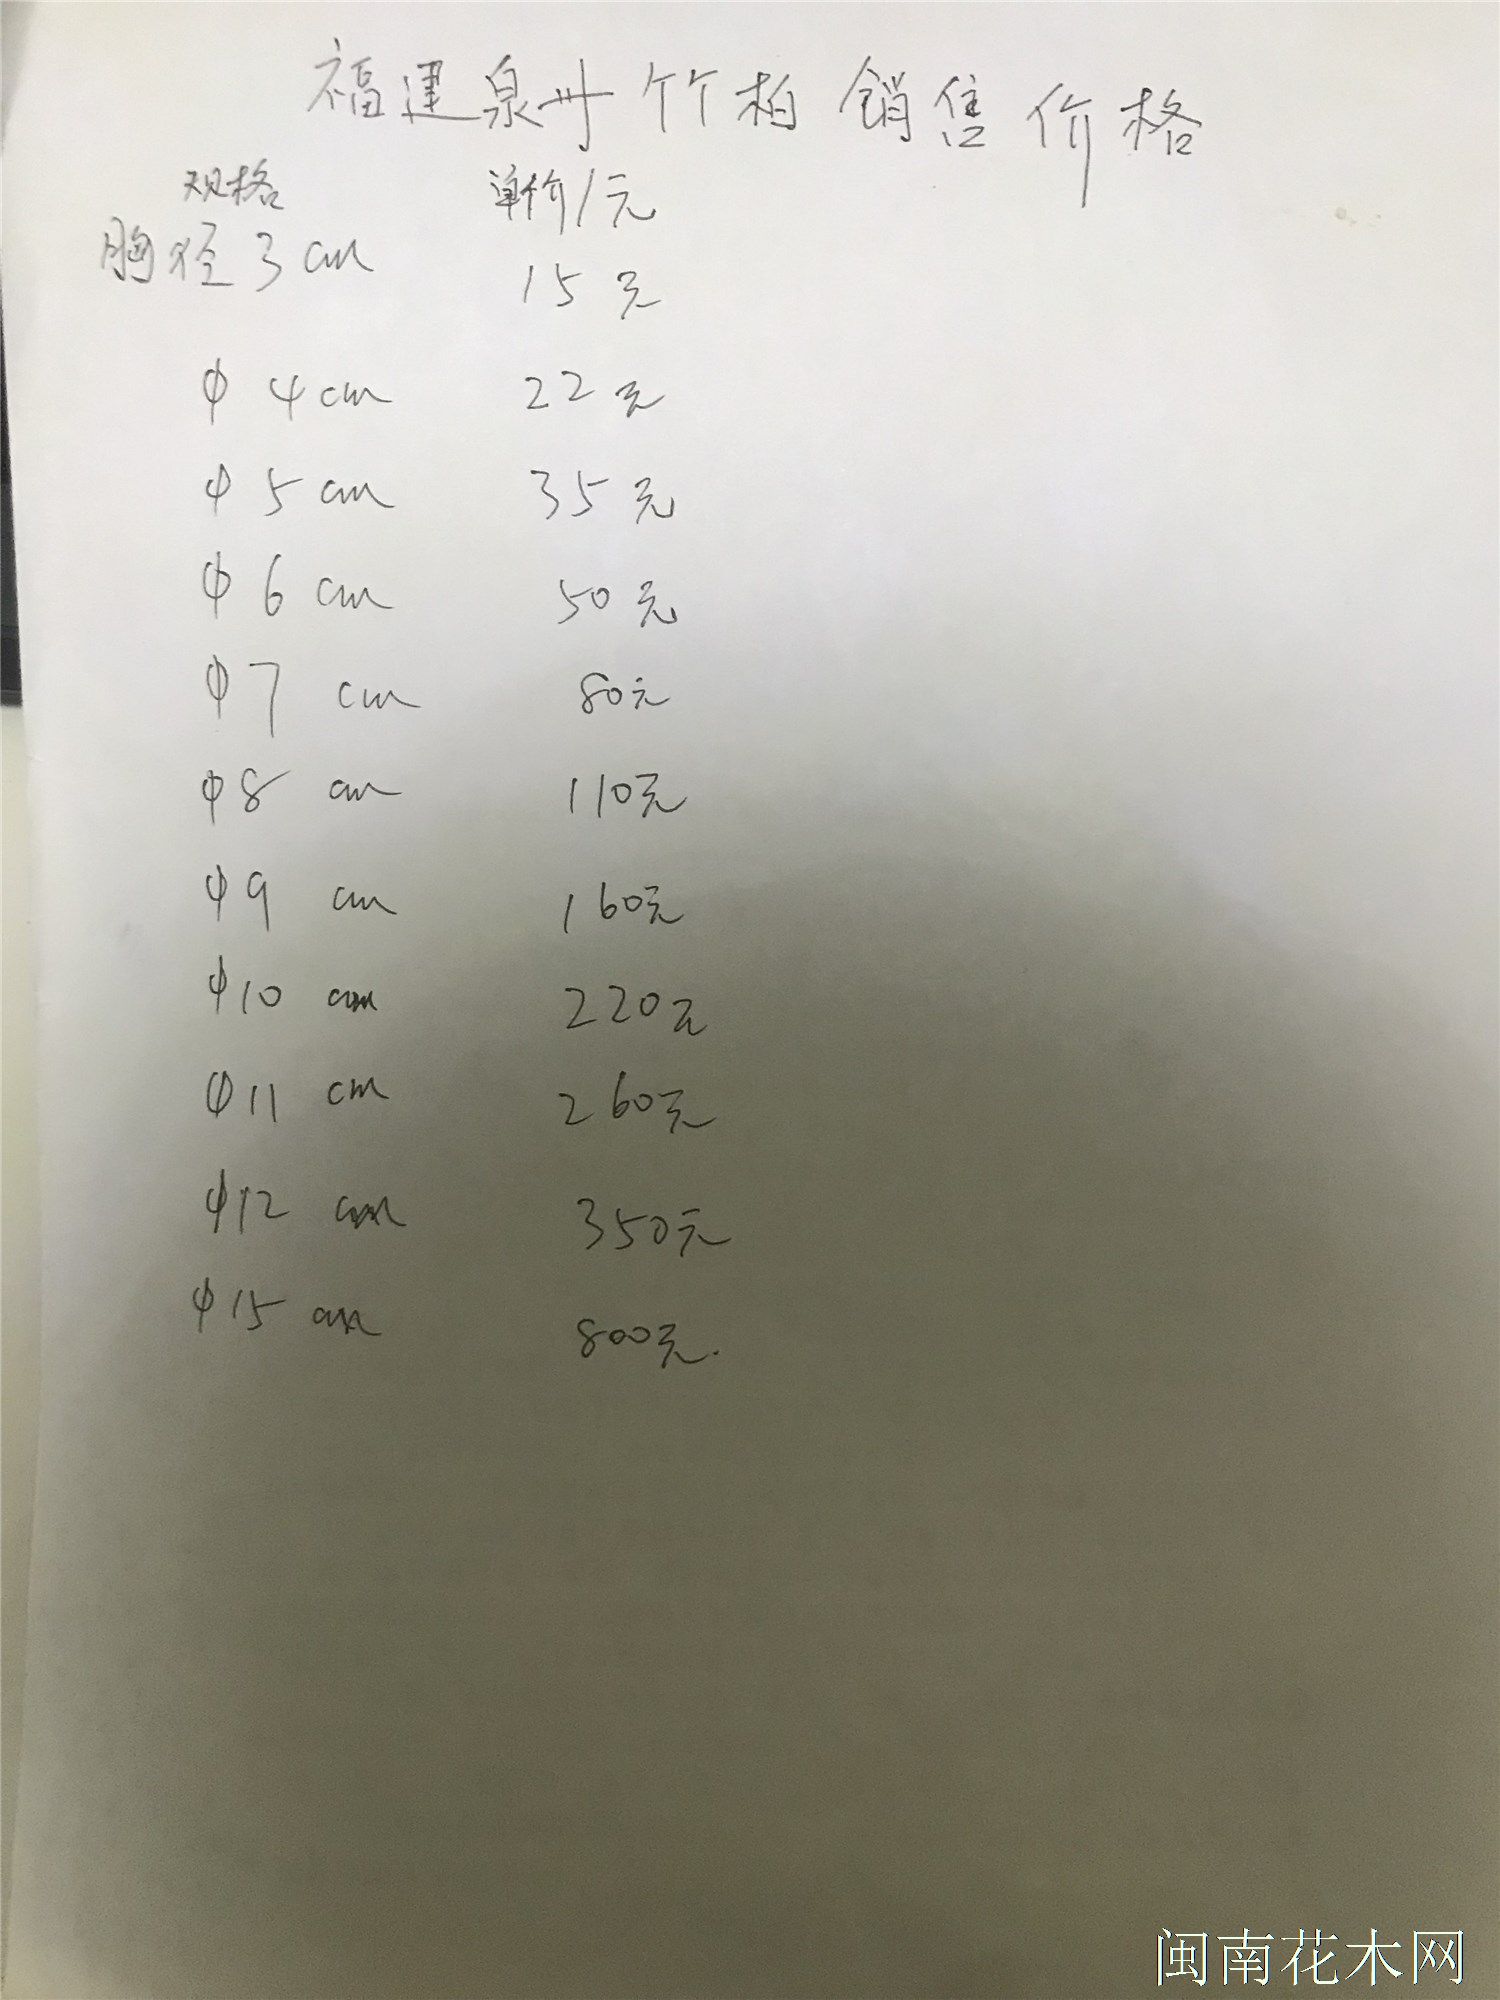 福建泉州竹柏销售价格
规格 单价/元
胸径3cm 15元
φ4cm 22元
φ5cm 35元
φ6cm 50元
φ7cm 80元
φ8cm 110元
φ9cm 160元
φ10cm 220元
φ11cm 260元
φ12cm 350元
φ15cm 800元.
闽南花木网